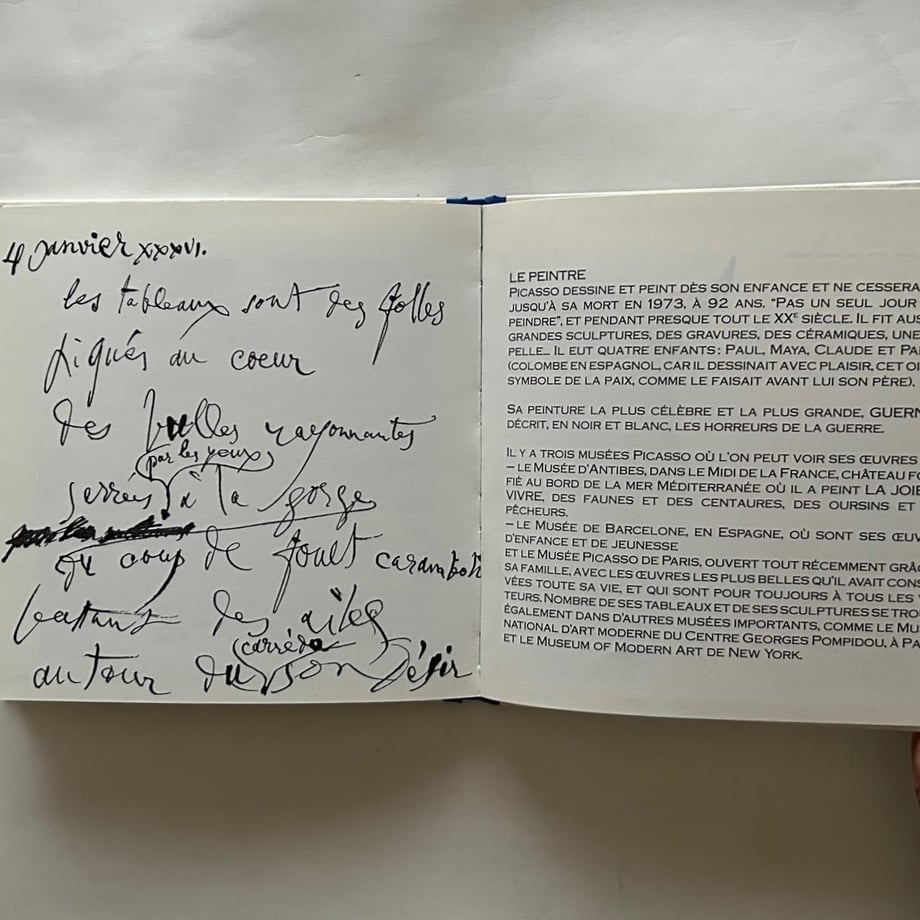 4 janvier XXXVI.
les tableaux sont des folles
piqués au coeur
des bulles rayonnantes
par les yeux
serrées à la gorge
du coup de fouet
battant des ailes
autour du carré de son désir
LE PEINTRE
PICASSO DESSINE ET PEINT DÈS SON ENFANCE ET NE CESSERA
JUSQU'À SA MORT EN 1973, À 92 ANS. "PAS UN SEUL JOUR
PEINDRE", ET PENDANT PRESQUE TOUT LE XXE SIÈCLE. IL FIT
GRANDES SCULPTURES, DES GRAVURES, DES CÉRAMIQUES, UNE
PELLE... IL EUT QUATRE ENFANTS : PAUL, MAYA, CLAUDE ET
(COLOMBE EN ESPAGNOL, CAR IL DESSINAIT AVEC PLAISIR, CET
SYMBOLE DE LA PAIX, COMME LE FAISAIT AVANT LUI SON PÈRE).
SA PEINTURE LA PLUS CÉLÈBRE ET LA PLUS GRANDE,
DÉCRIT, EN NOIR ET BLANC, LES HORREURS DE LA GUERRE.
IL Y A TROIS MUSÉES PICASSO OÙ L'ON PEUT VOIR SES ŒUVRES
– LE MUSÉE D'ANTIBES, DANS LE MIDI DE LA FRANCE, CHÂTEAU
FIÉ AU BORD DE LA MER MÉDITERRANÉE OÙ IL A PEINT LA JOIE
VIVRE, DES FAUNES ET DES CENTAURES, DES OURSINS ET
PÊCHEURS.
– LE MUSÉE DE BARCELONE, EN ESPAGNE, OÙ SONT SES
D'ENFANCE ET DE JEUNESSE
ET LE MUSÉE PICASSO DE PARIS, OUVERT TOUT RÉCEMMENT
SA FAMILLE, AVEC LES ŒUVRES LES PLUS BELLES QU'IL AVAIT
VÉES TOUTE SA VIE, ET QUI SONT POUR TOUJOURS À TOUS LES
TEURS. NOMBRE DE SES TABLEAUX ET DE SES SCULPTURES SE
ÉGALEMENT DANS D'AUTRES MUSÉES IMPORTANTS, COMME LE
NATIONAL D'ART MODERNE DU CENTRE GEORGES POMPIDOU, À
ET LE MUSEUM OF MODERN ART DE NEW YORK.